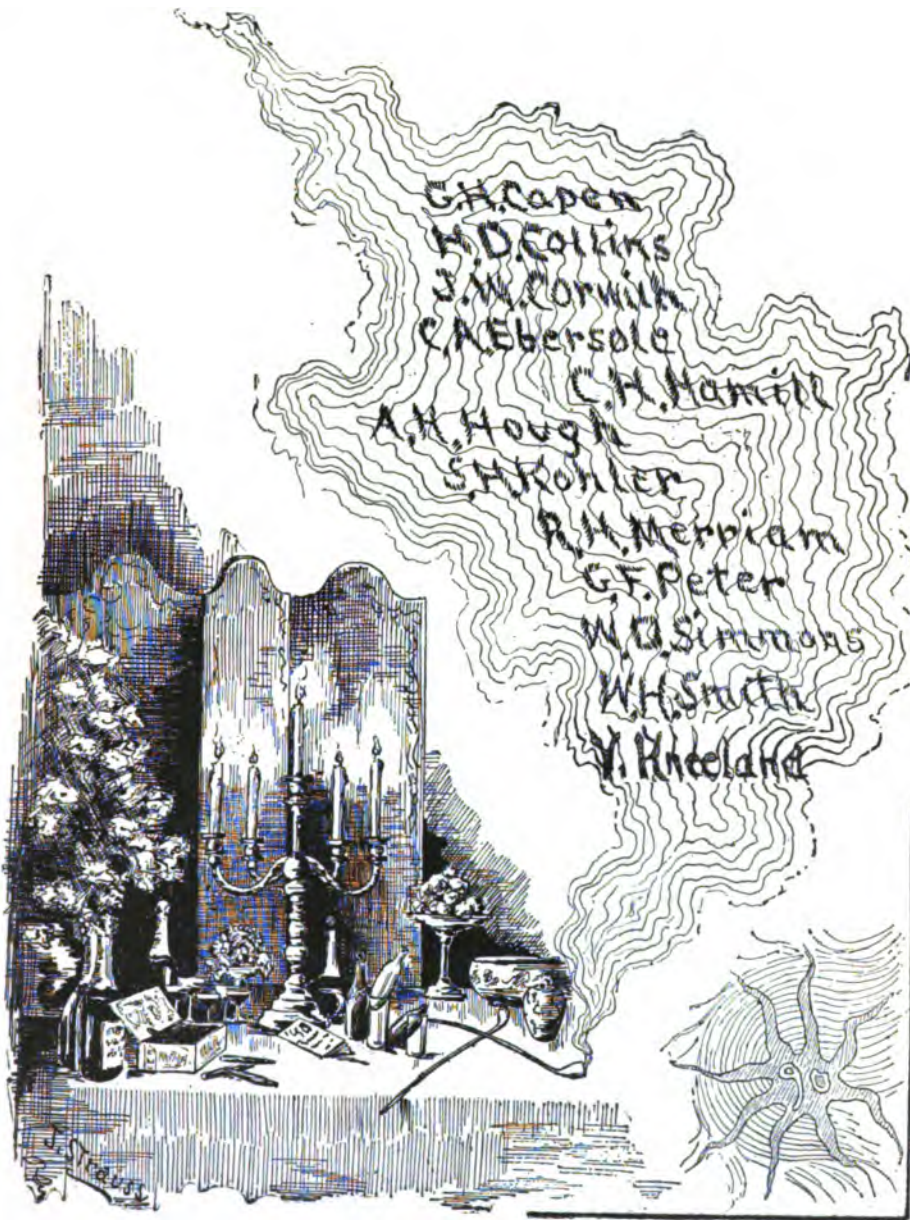 G.H.Capen
H.D.Collins
J.W.Corwith
C.A.Ebersole
C.H.Hamill
A.H.Hough
S.H.Kohler
R.H.Merriam
G.F.Peter
W.D.Simmons
W.H.Smith
Y. Kneeland
J. Strauss